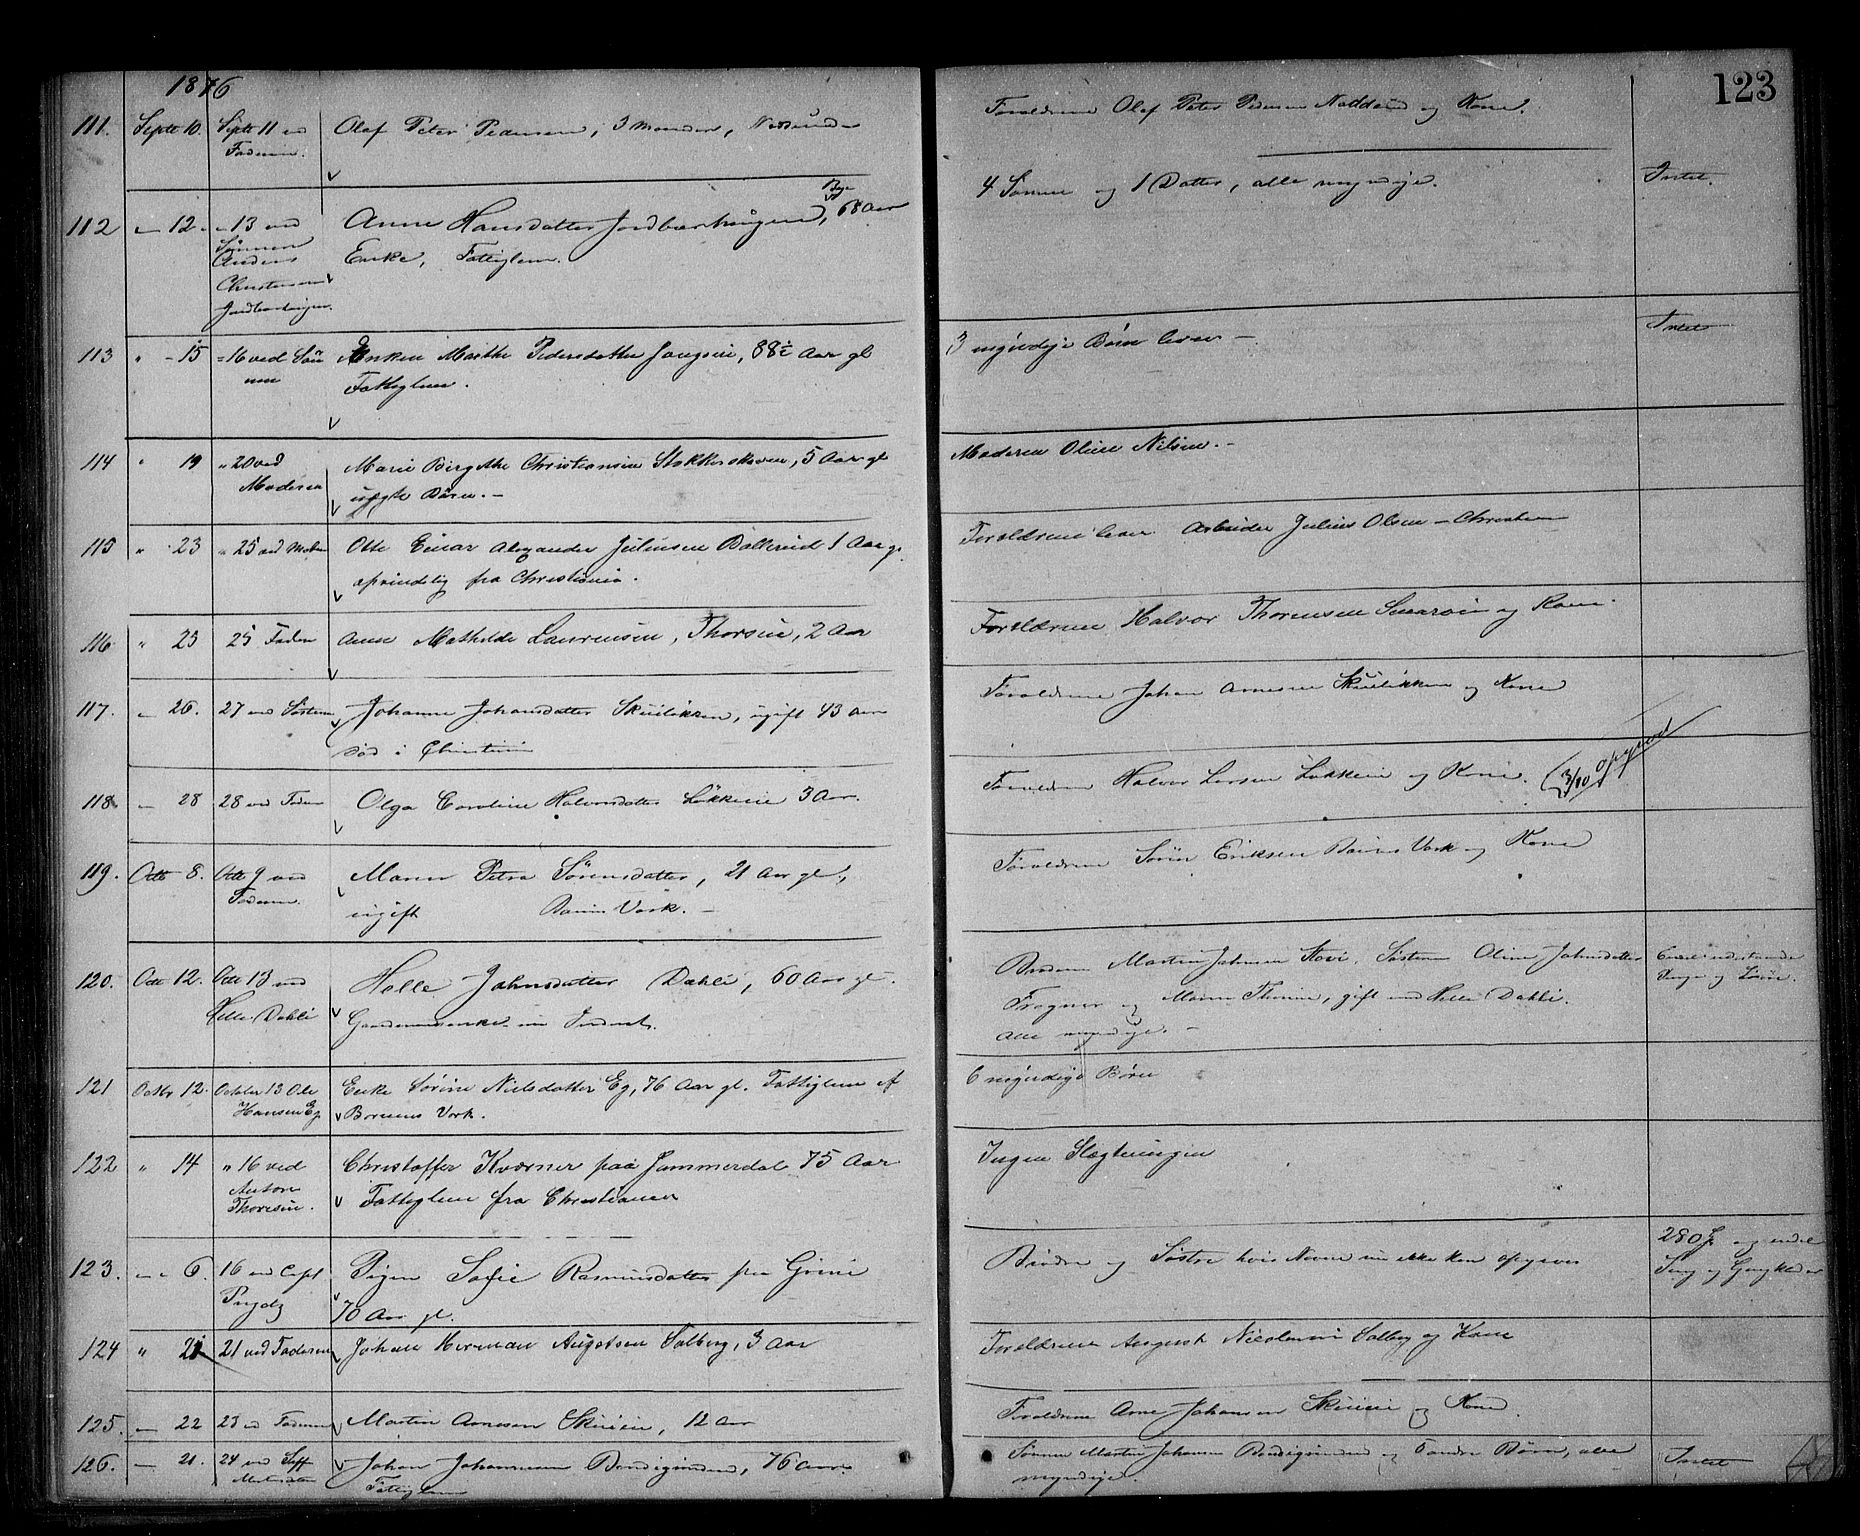 1876
123
111. Septr 10. Septr 11 ved Olaf Peter Pedersen, 3 Maaneder,
Faderen.
Forældrene Olaf Peter Pedersen og Kone.
112 — 12. — 13 ved Anne Hansdatter Jordbærhaugen, 68 Aar
Sønnen Enke, Fattiglem.
Anders
Christensen
Jordbærhaugen.
4 Sønner og 1 Datter, alle myndige. Intet.
113 " - 15 = 16 ved Søn Enken Marthe Pedersdatter 88½ Aar gl
nen Fattiglem.
3 myndige Børn lever — Intet
114 " 19 " 20 ved Marie Birgithe Christiansen Stokkerskoven, 5 Aar gl
Moderen uægte Barn. —
Moderen Oline Nilsen. —
115 " 23 " 25 ved Mod Otto Einar Alexander Juliussen Ballerud 1 Aar gl
oprindelig fra Christiania.
Forældrene lever. Arbeider Julius Olsen — Christian
116 " 23 25 Faderen Anne Mathilde Laurensen, Thorsen, 2 Aar
Forældrene Halvor Thorensen og Kone.
117. — 26. 27 ved Søsteren Johanne Johansdatter Skuiløkken, ugift 43 Aar
død i Christiania
Forældrene Johan Arnesen Skuiløkken og Kone
118 — 28 28 ved Faderen Olga Caroline Halvorsdatter Løkkeie 3 Aar.
Forældrene Halvor Larsen Løkkeie og Kone. (3/10 opgivet
119. Octo 8. Octo 9 ved Maren Petra Sørensdatter, 21 Aar gl,
Faderen. ugift Bærums Værk. —
Forældrene Søren Eriksen Bærums Værk og Kone
120. Octo 12. Octo 13 ved Helle Johnsdatter Dahli, 60 Aar gl.
Helle Dahli Gaardmandsenke
Broderen Martin Johnsen Stovi. Søsteren Oline Johnsdatter
Frogner og Maren Thorine, gift med Helle Dahli.
alle myndige. —
Penge og Løsøre.
121 Octbr 12. October 13 Ole Enke Sørine Nielsdatter Eg, 76 Aar gl. Fattiglem af
Hansen Eg Bærums Værk.
6 myndige Børn
122 " 14 " 16 ved Christoffer Kværner paa Jammerdal 75 Aar
Anton Fattiglem fra Christiania
Thoresen.
Ingen Slægtninger
123. — 6. 16 ved Capt Pigen Sofie Rasmusdatter fra Grini
Prydz 70 Aar gl.
Brødre og Søstre hvis Navne nu ikke kan opgives
280 og endel
Seng og Gangklæder
124 " 21 21 ved Faderen Johan Herman Augutsen Solberg, 3 Aar
Forældrene August Nicolaisen Solberg og Kone
125. — 22 23 ved Faderen Martin Arnesen Skuieie, 12 Aar
Forældrene Arne Johansen Skuieie og Kone.
126. — 21. 24 ved Johan Johannesen 76 Aar.
Fattiglem
Sønnen Martin Johansen og 5 andre Børn, alle
myndige. Intet